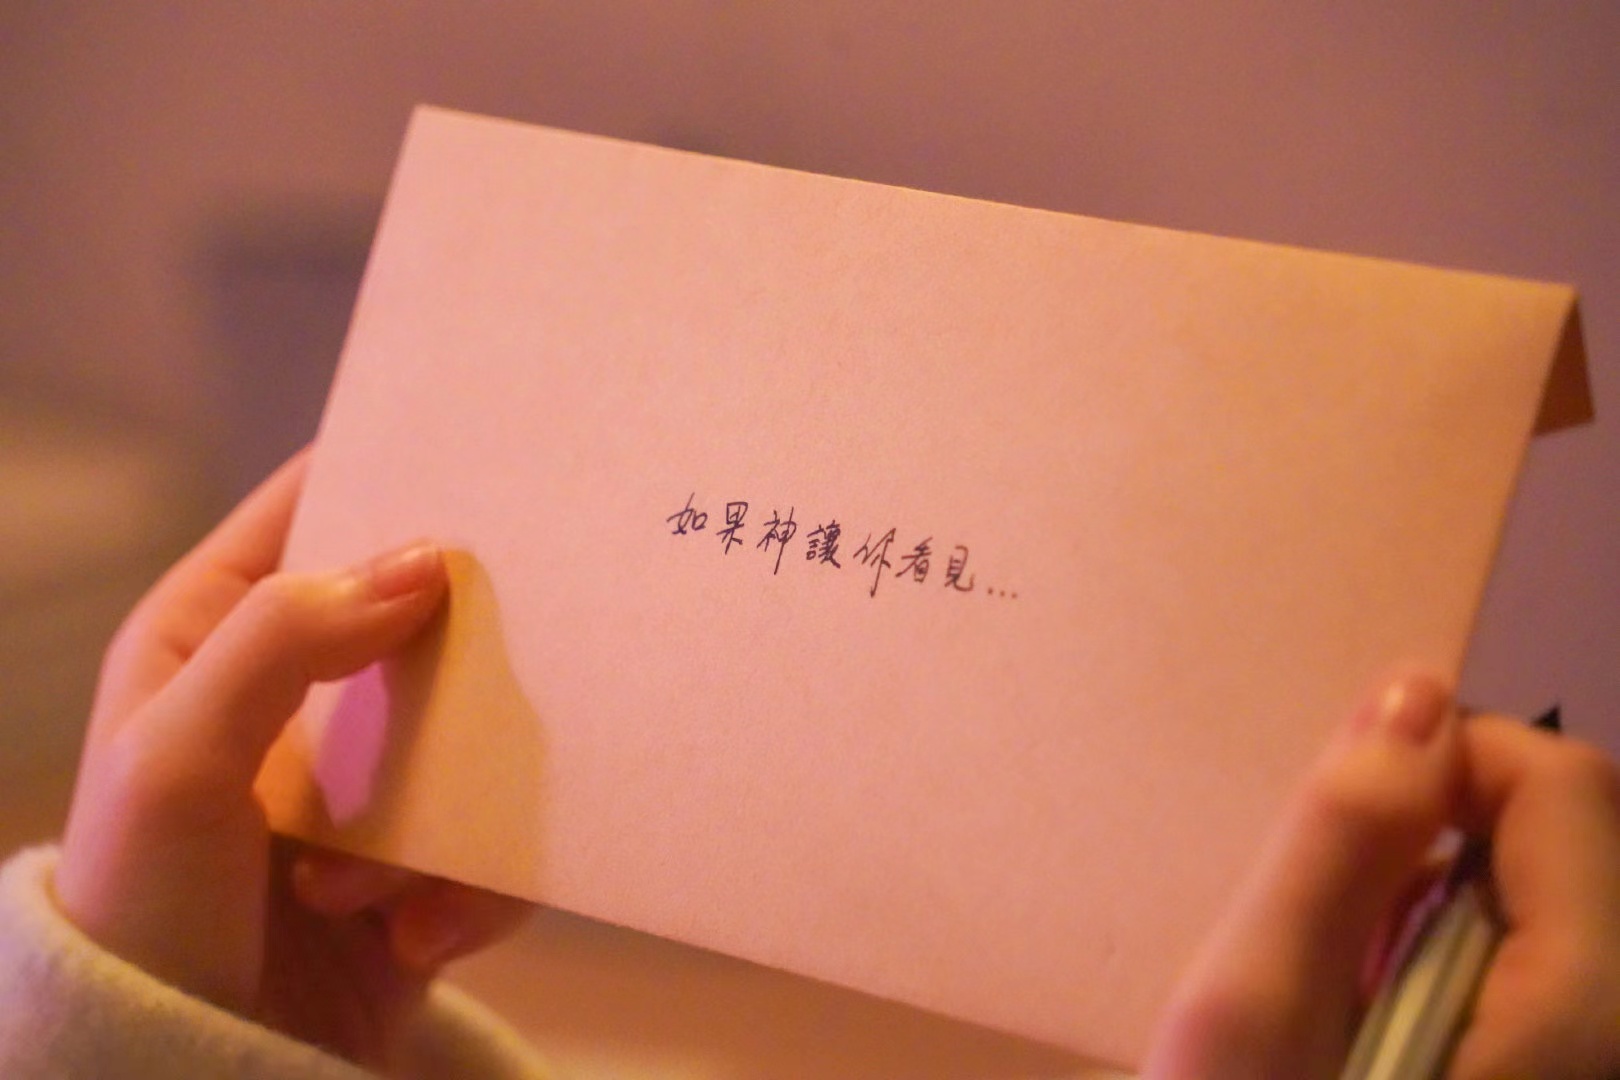 如果神讓你看見...